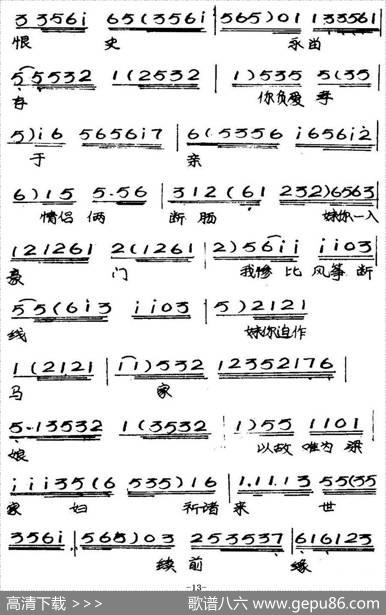 3 3 5 6 i 6 5 (3 5 6 i | 5 6 5) 0 1 1 3 3 5 6 1
恨 史 永留
5 5 5 3 2 1 (2 5 3 2 | 1) 5 3 5 5 (3 5
存 你负爱 孝
5) i 6 5 6 5 6 i 7 | 6 (5 3 5 6 i 6 5 6 i 2
于 亲
6) 1 5 5 · 5 6 | 3 1 2 (6 1 2 3 2) 6 5 6 3
情侣 俩 断 肠 妹你一入
1 2 1 2 6 1 2 (1 2 6 1 | 2) 5 6 i i i i 0 3
豪 门 我惨 比 风筝 断
5 5 (6 i 3 i i 0 3 | 5) 2 1 2 1
线 妹你迫作
1 (2 1 2 1 | 1 1) 5 3 2 1 2 3 5 2 1 7 6
马 家
5 · 1 3 5 3 2 1 (3 5 3 2 | 1) 5 5 1 1 0 1
娘 以故 唯为 梁
i i i 3 5 (6 5 3 5) i 6 | 1 . 1 1 . 1 3 5 5 (3 5
家 妇 祈诸 来 世
3 5 6 i | 5 6 5) 0 3 2 5 3 5 3 7 | 6 1 6 1 2 3
续 前 缘
-13-
高清下载 >>> 歌谱八六 www.gepu86.com